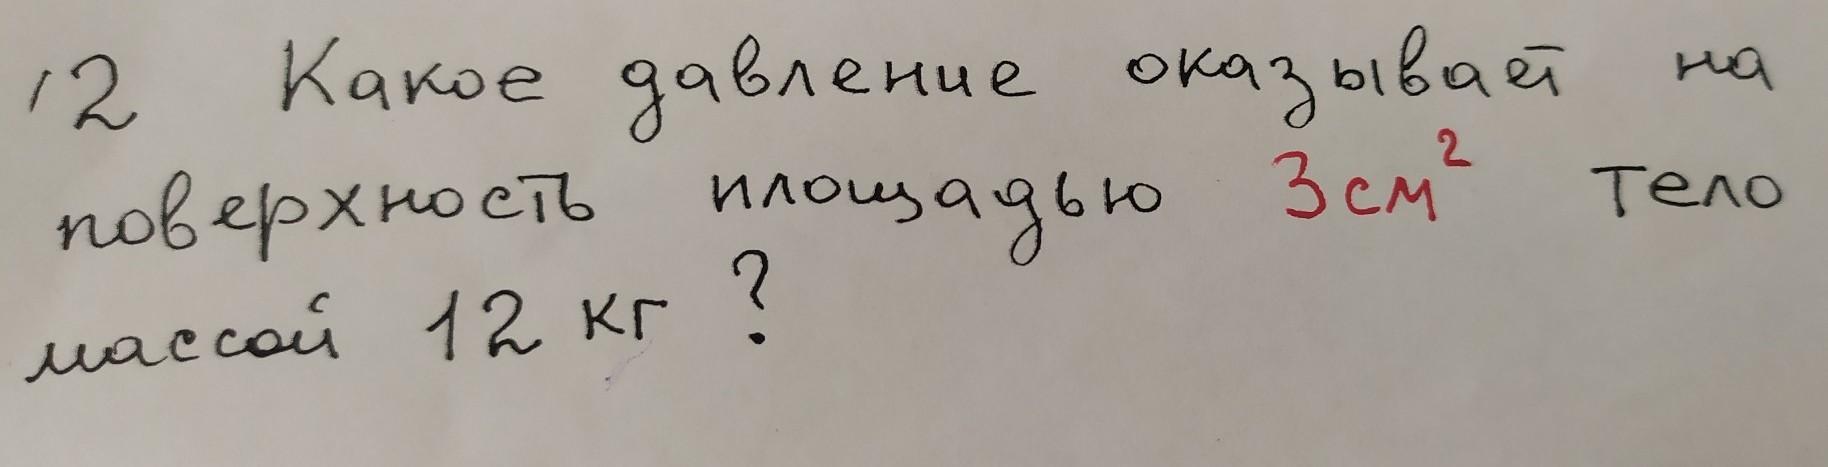 12 Какое давление оказывает на
поверхность площадью 3см² тело
массой 12 кг ?